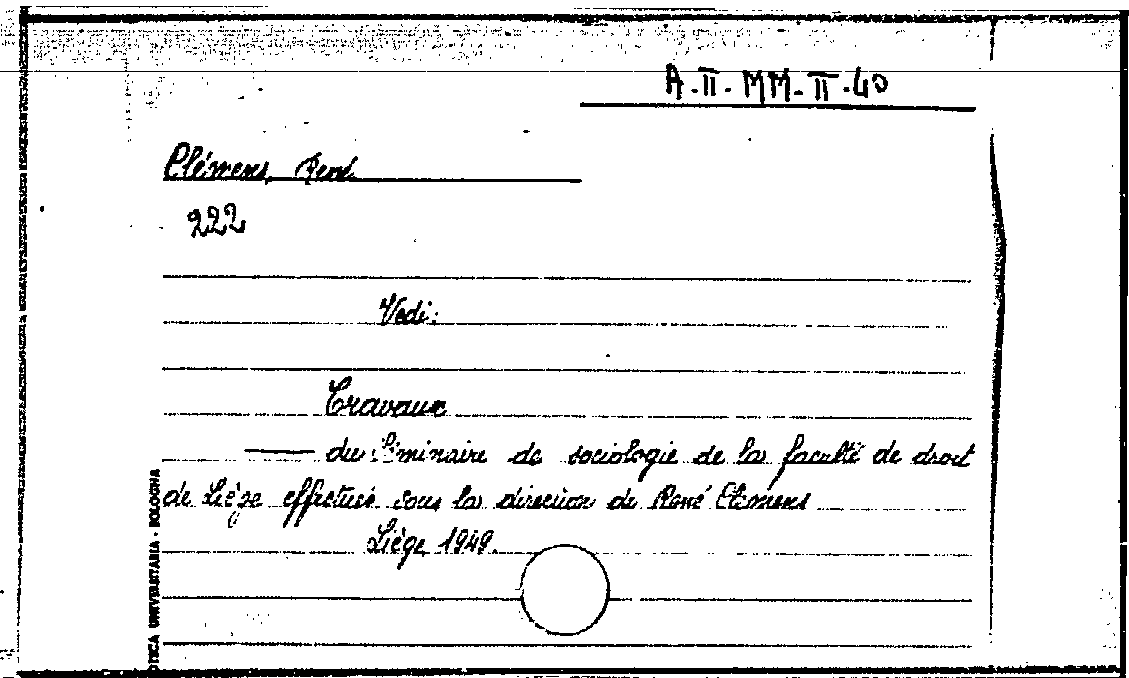 A-II-MM-II-40
Clémens, René
222
Vedi:
Travaux
—— du Séminaire de sociologie de la faculté de droit
de Liège effectués sous la direction de René Clémens
Liège 1949.
OTECA UNIVERSITARIA - BOLOGNA